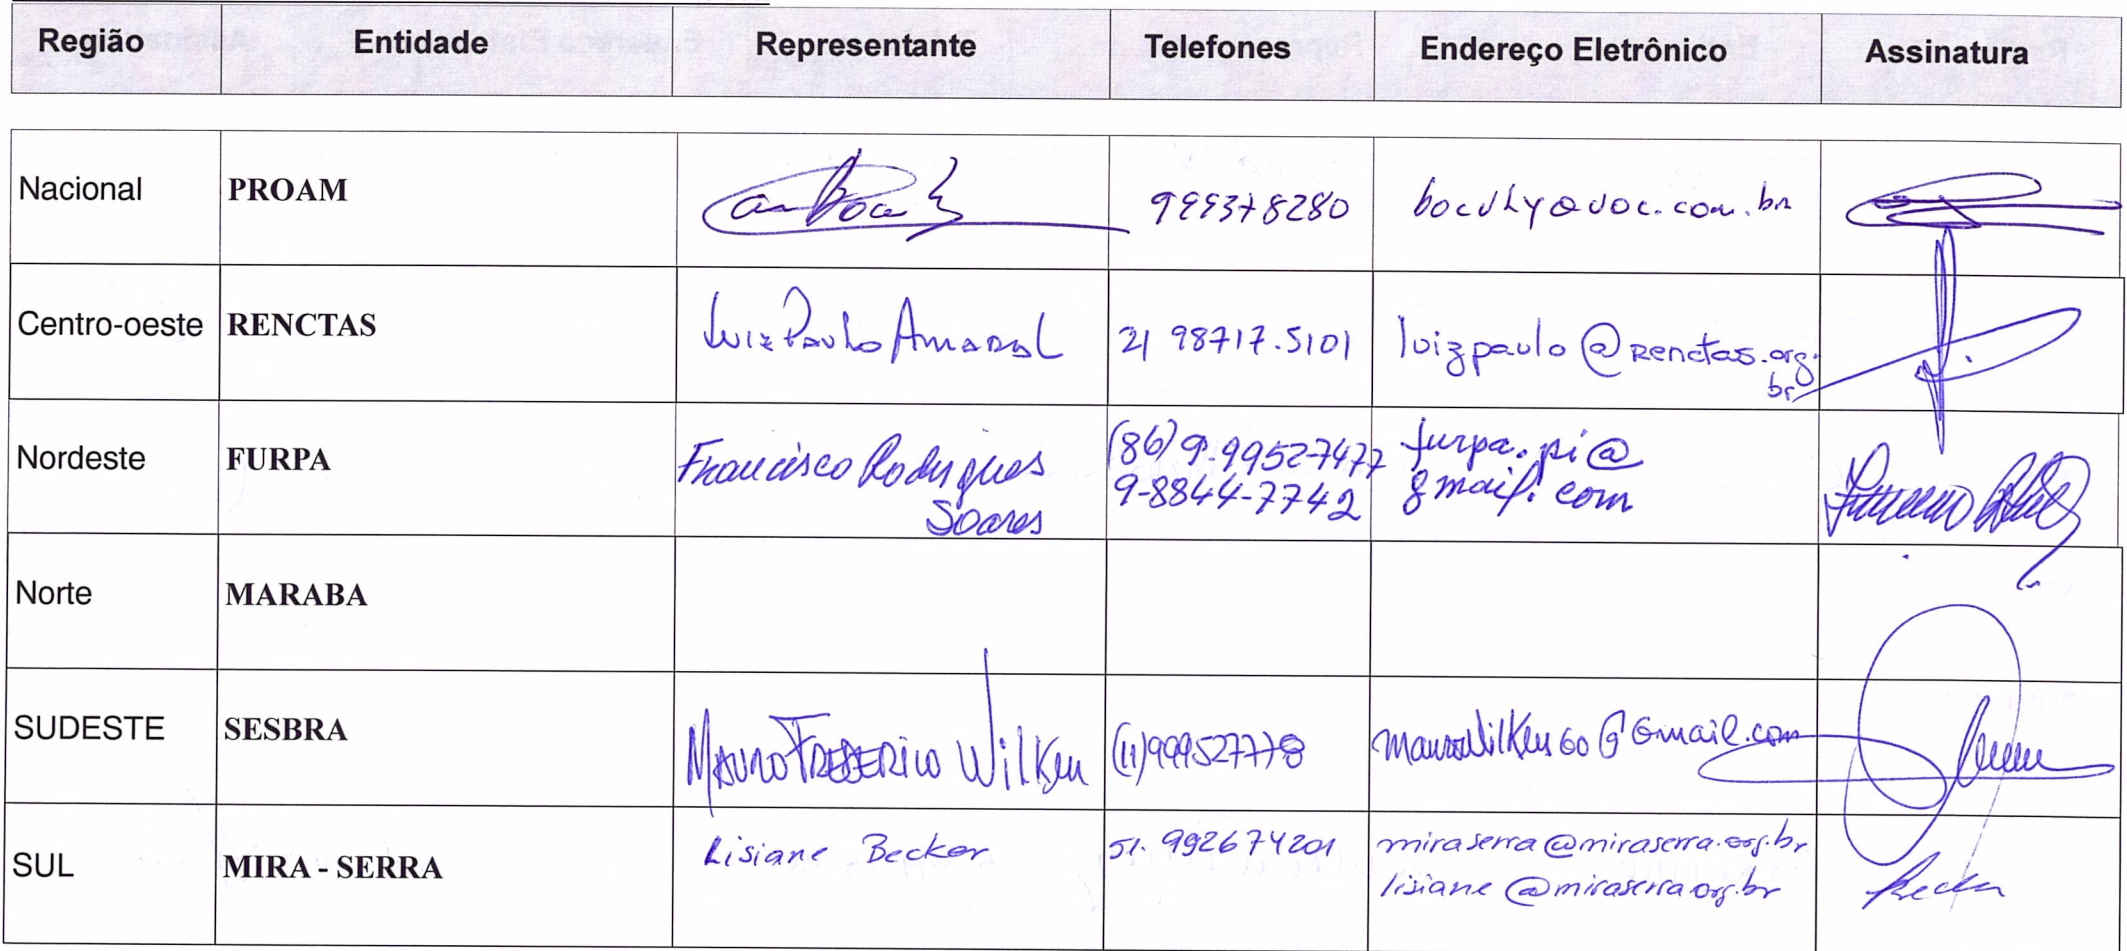 Região Entidade Representante Telefones Endereço Eletrônico Assinatura
Nacional PROAM 999378280 bocuhy@uol.com.br
Centro-oeste RENCTAS Luiz Paulo Amaral 21 98717.5101 luizpaulo@renctas.org.
br
Nordeste FURPA Francisco Rodrigues (86) 9-99527477 furpa.pi@
Soares 9-8844-7742 gmail.com
Norte MARABA
SUDESTE SESBRA Mauro Frederico Wilken (11) 999527778 maurowilken60@Gmail.com
SUL MIRA - SERRA Lisiane Becker 51. 992674201 miraserra@miraserra.org.br
lisiane@miraserra.org.br Becker